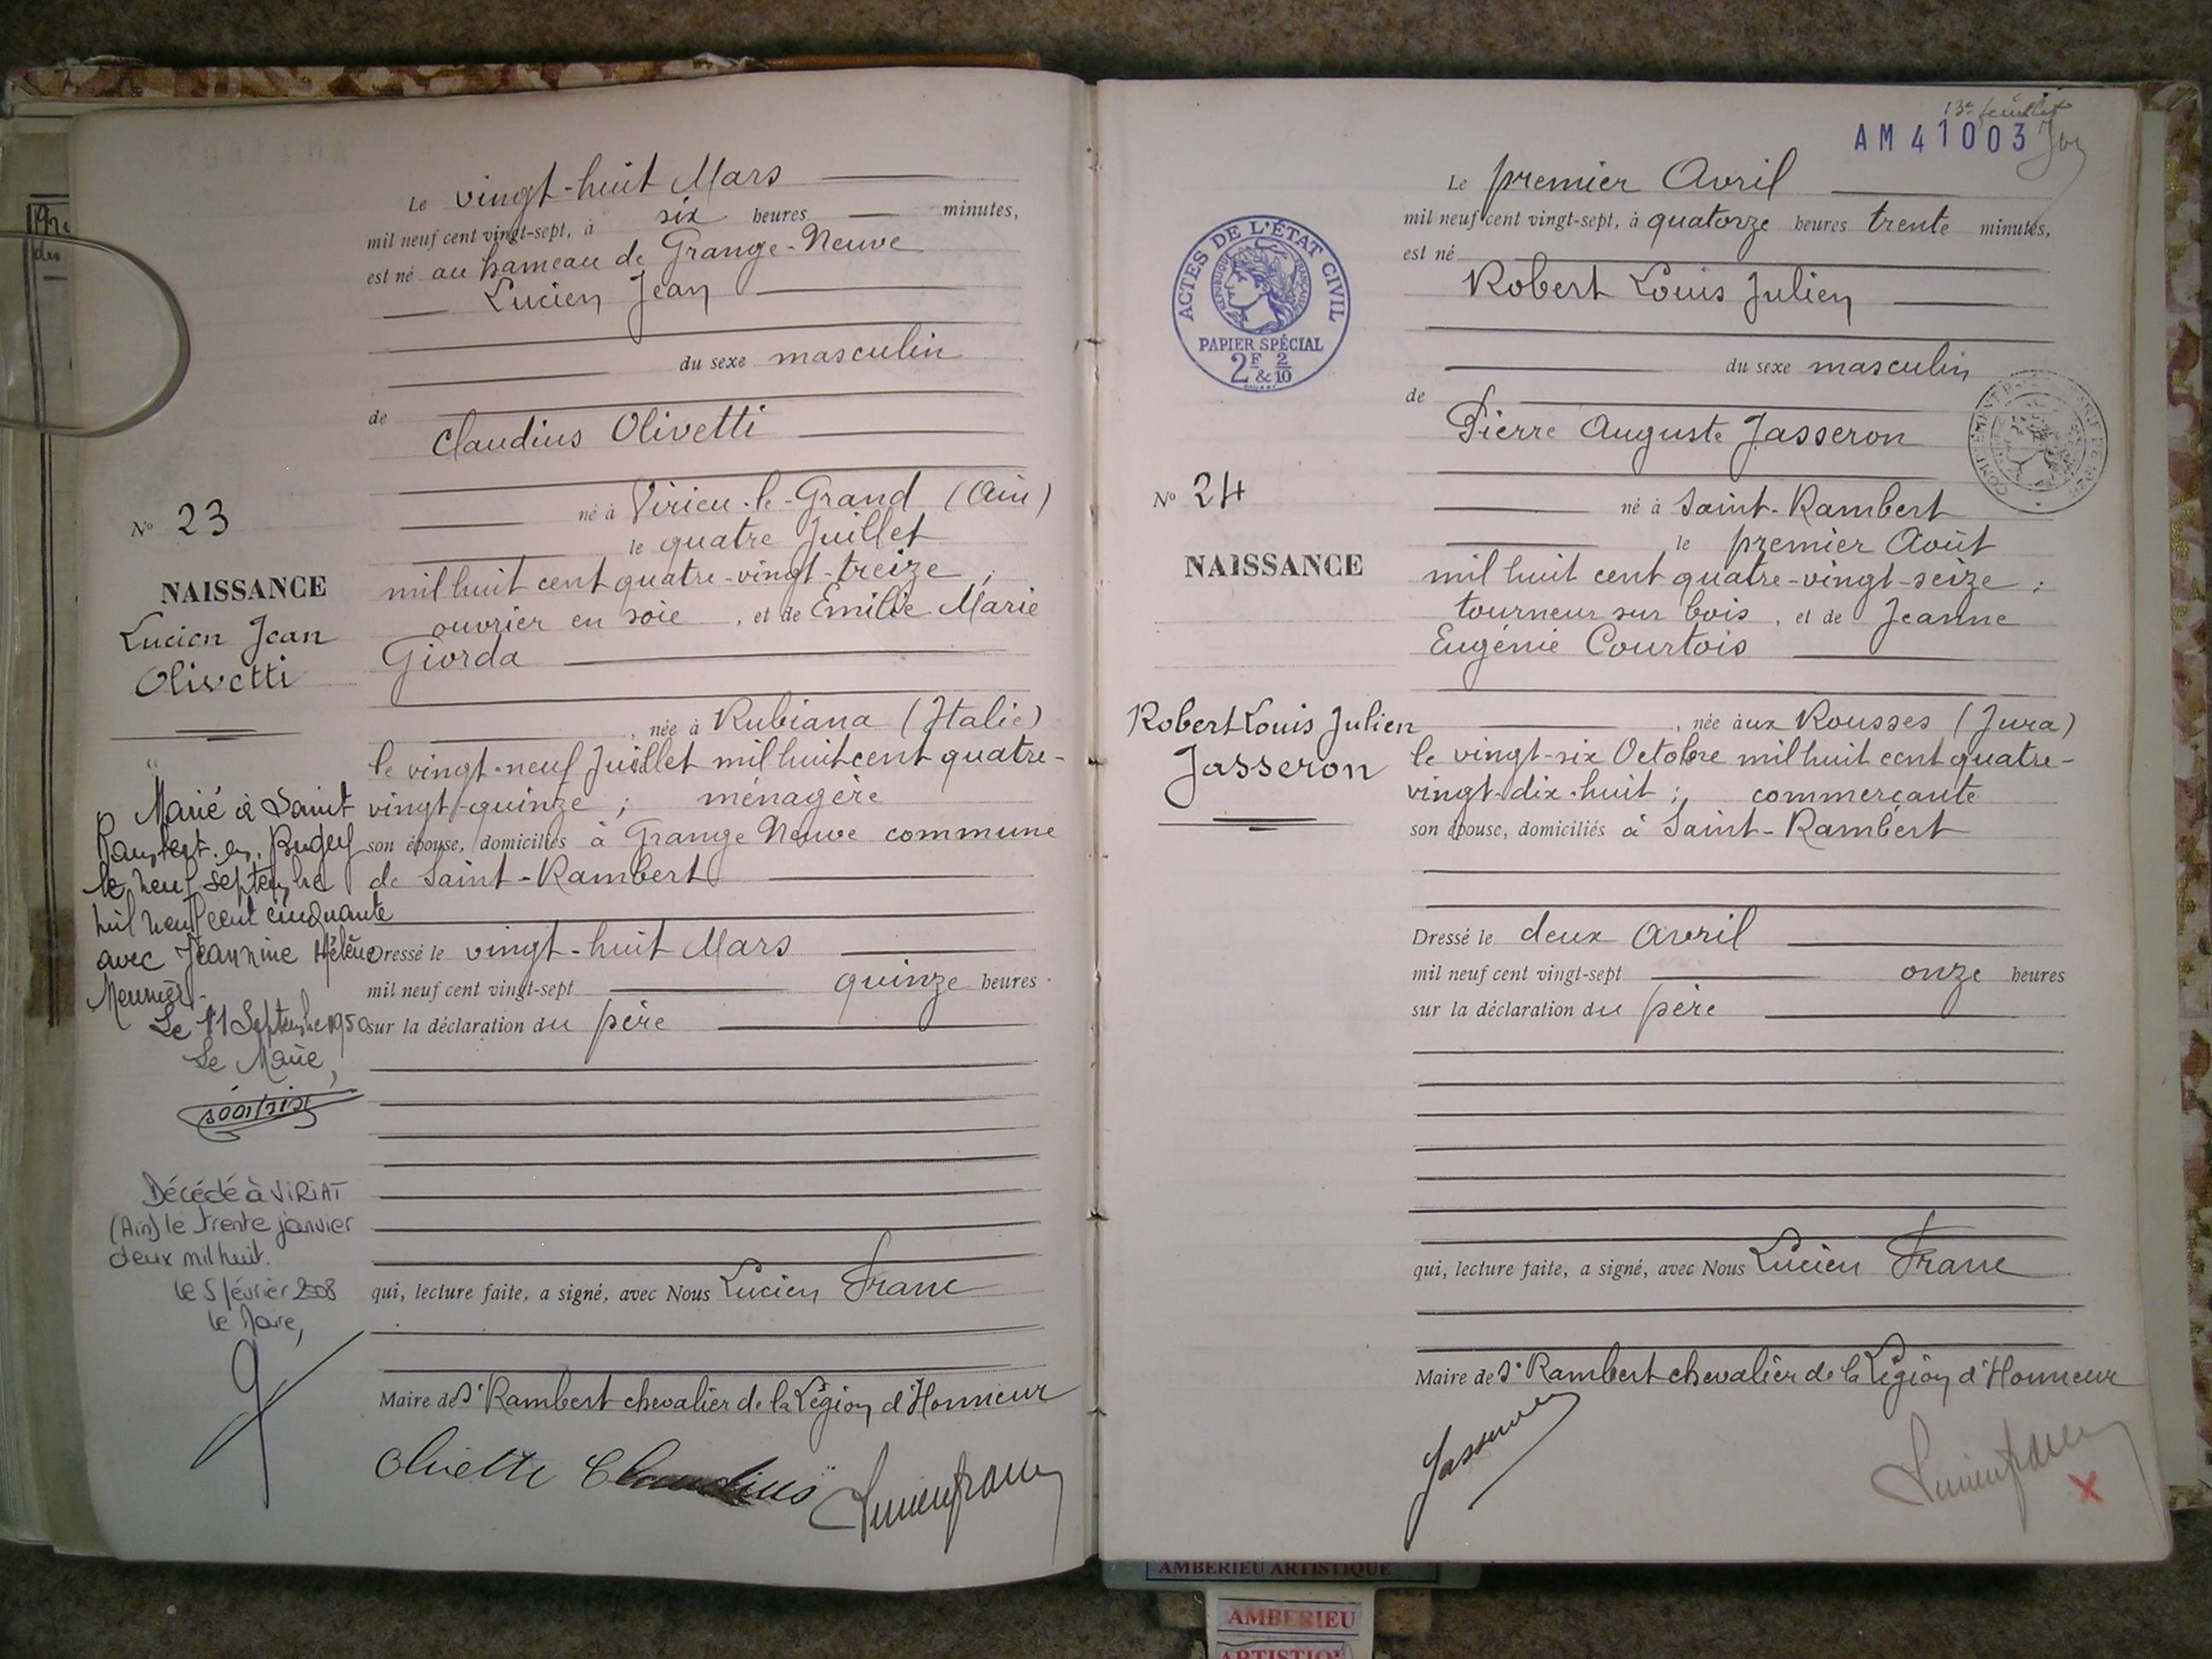 Le vingt-huit Mars
mil neuf cent vingt-sept, à six heures minutes,
est né au hameau de Grange-Neuve
Lucien Jean
du sexe masculin
de
Claudius Olivetti
né à Virieu-le-Grand (Ain)
le quatre Juillet
mil huit cent quatre-vingt-treize ;
ouvrier en soie , et de Emilie Marie
Giorda
, née à Rubiana (Italie)
le vingt-neuf Juillet mil huit cent quatre-
vingt-quinze ; ménagère
son épouse, domiciliés à Grange Neuve commune
de Saint-Rambert
Dressé le vingt-huit Mars
mil neuf cent vingt-sept quinze heures
sur la déclaration du père
qui, lecture faite, a signé, avec Nous Lucien Franc
Maire de St Rambert chevalier de la Légion d'Honneur
Olivetti Claudius
Lucien Franc
N° 23
NAISSANCE
Lucien Jean
Olivetti
Marié à Saint
Rambert-en-Bugey
le neuf septembre
mil neuf cent cinquante
avec Jeannine Hélène
Meunier.
Le 11 Septembre 1950
Le Maire,
Décédé à VIRIAT
(Ain) le trente janvier
deux mil huit.
le 5 février 2008
le Maire,
13e feuillet
AM 41003
Le premier Avril
mil neuf cent vingt-sept, à quatorze heures trente minutes,
est né
Robert Louis Julien
du sexe masculin
de
Pierre Auguste Jasseron
né à Saint-Rambert
le premier Août
mil huit cent quatre-vingt-seize ;
tourneur sur bois , et de Jeanne
Eugénie Courtois
, née aux Rousses (Jura)
le vingt-six Octobre mil huit cent quatre-
vingt-dix-huit ; commerçante
son épouse, domiciliés à Saint-Rambert
Dressé le deux Avril
mil neuf cent vingt-sept onze heures
sur la déclaration du père
qui, lecture faite, a signé, avec Nous Lucien Franc
Maire de St Rambert chevalier de la Légion d'Honneur
Jasseron
Lucien Franc
ACTES DE L'ÉTAT CIVIL
RÉPUBLIQUE FRANÇAISE
PAPIER SPÉCIAL
2F & 2/10
N° 24
NAISSANCE
Robert Louis Julien
Jasseron
AMBERIEU ARTISTIQUE
AMBERIEU